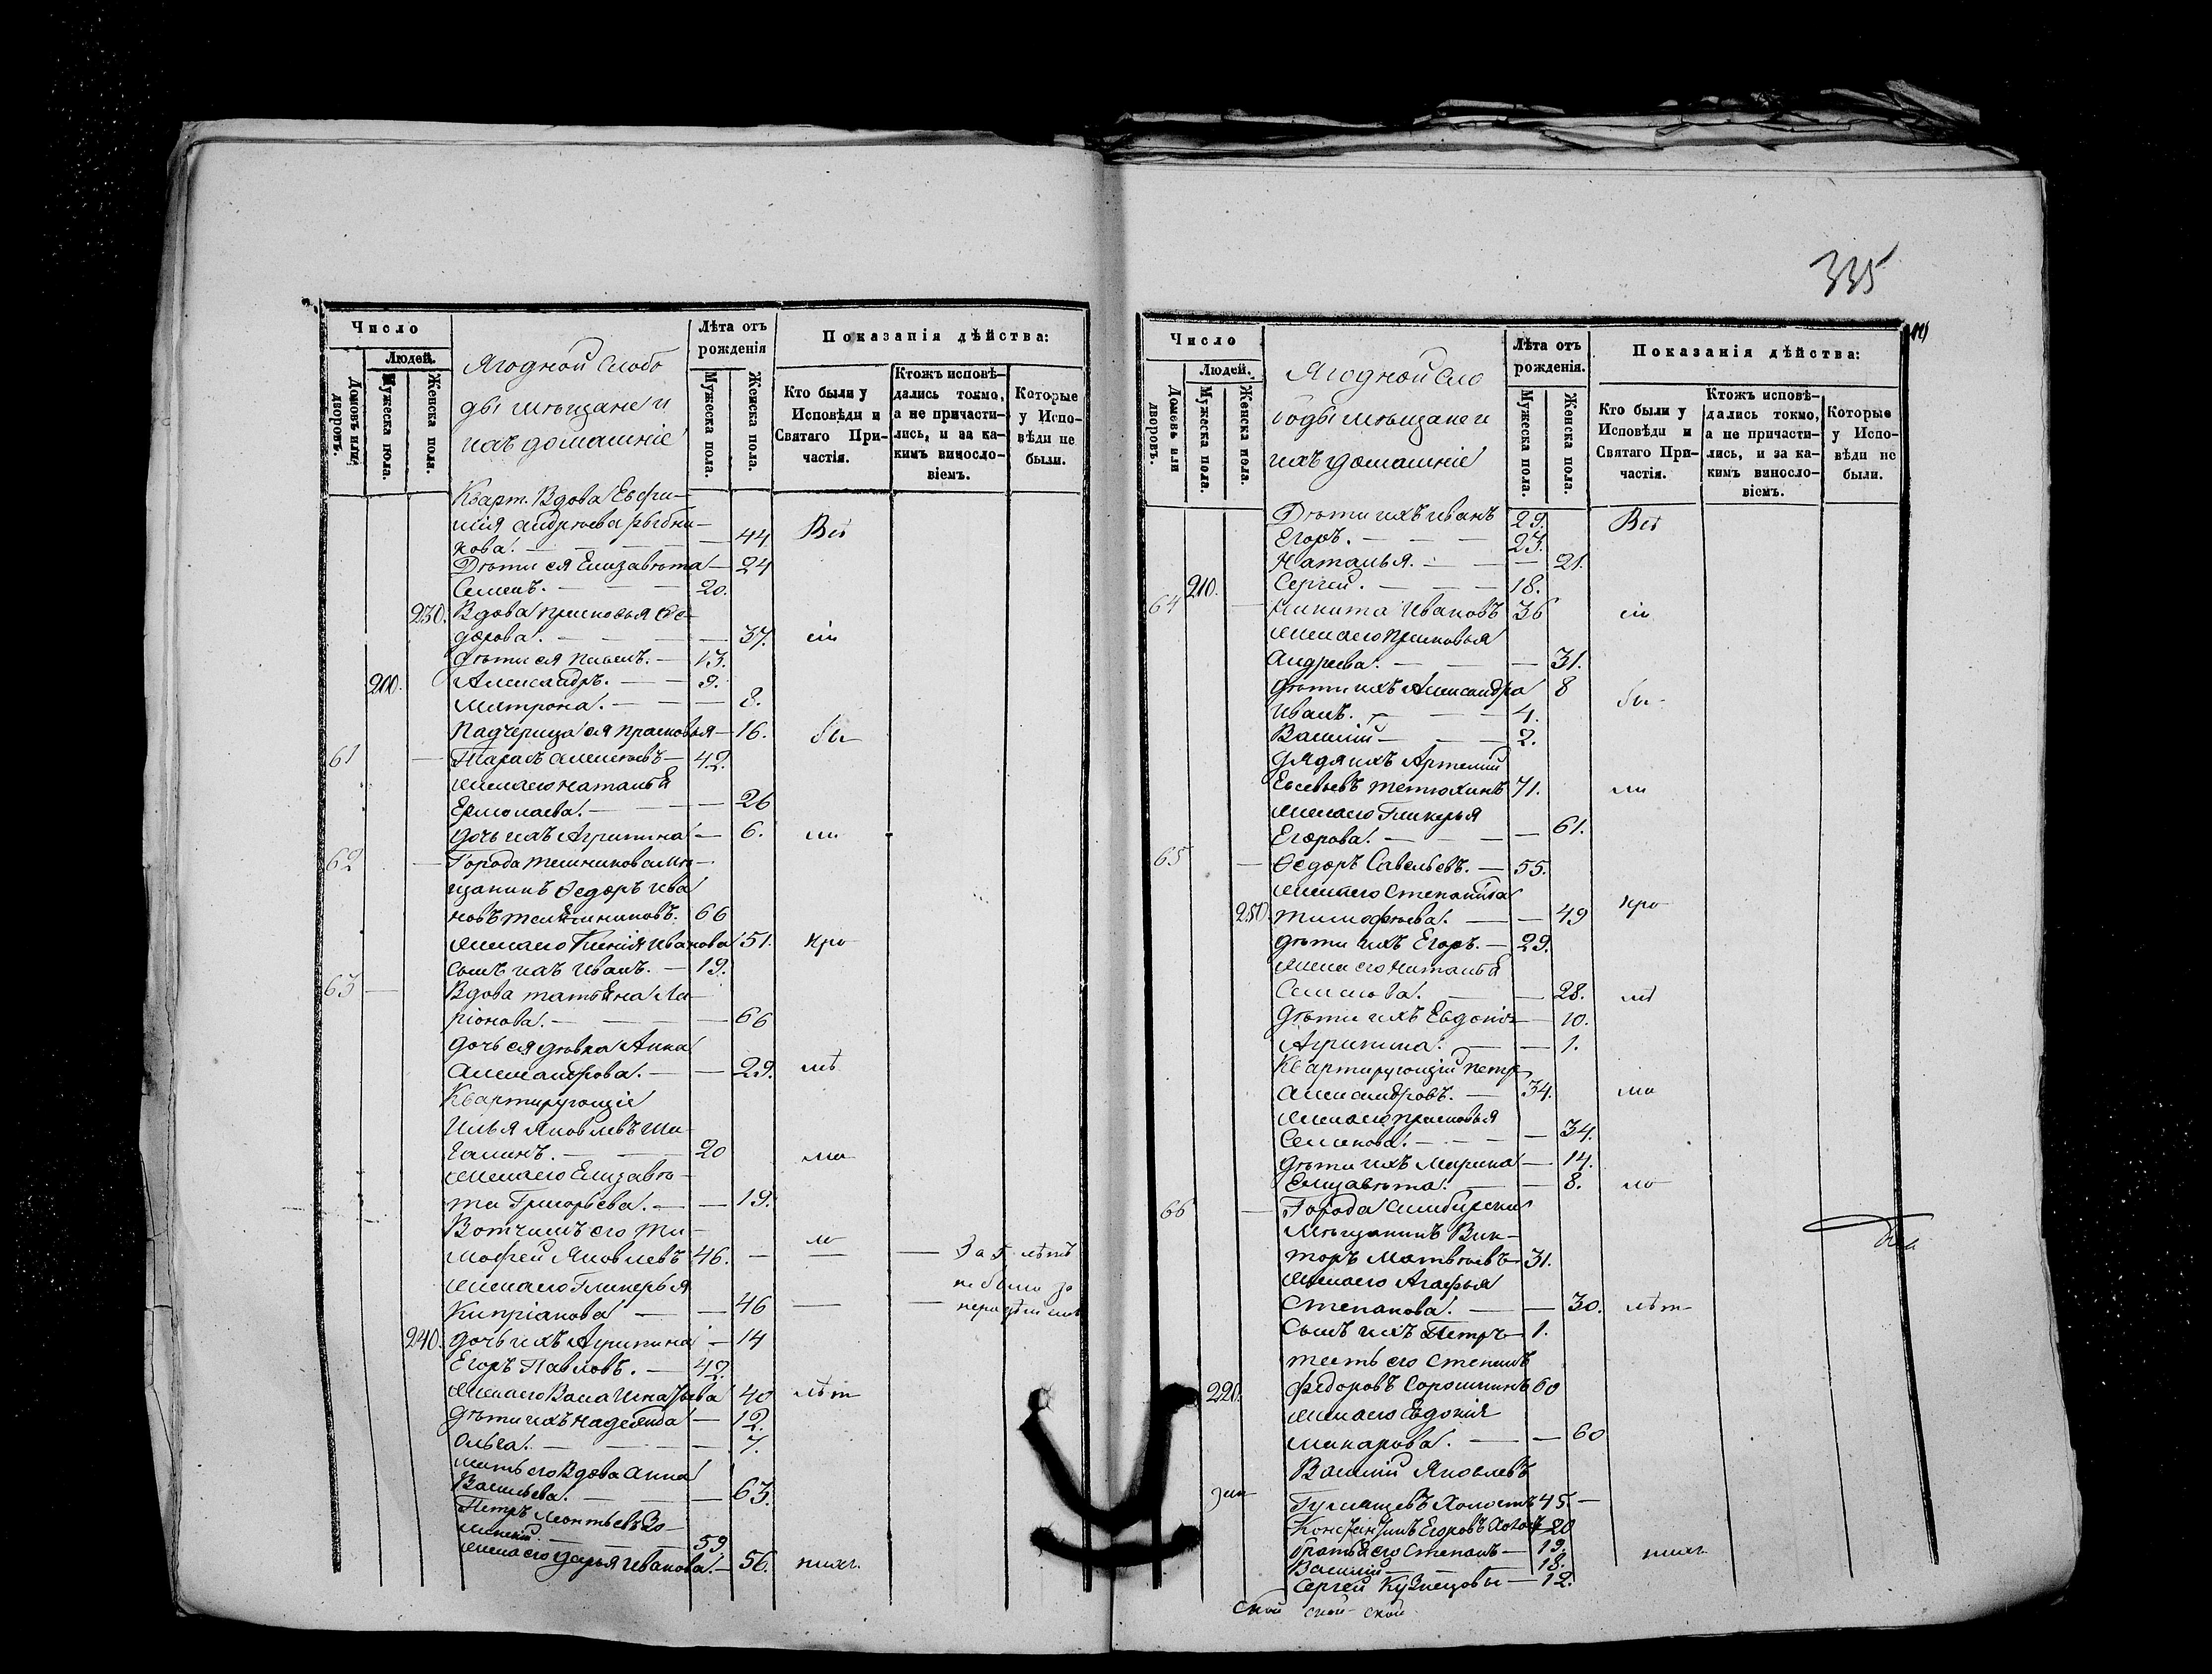 335
Число
Людей.
Домовъ или дворовъ.
Мужеска пола.
Женска пола.
Ягодной слобо
ды мѣщане и
ихъ домашніе
Лѣта отъ
рожденія
Мужеска пола.
Женска пола.
Показанія дѣйства:
Кто были у
Исповѣди и
Святаго При-
частія.
Ктожъ исповѣ-
дались токмо,
а не причасти-
лись, и за ка-
кимъ винословіемъ.
Которые
у Испо-
вѣди не
были.
Кварт. Вдова Евфи-
мія Андреева Рыбни-
кова. 44 Всѣ
Дѣти ея Елизавета 24
Семенъ. 20.
230. Вдова Прасковья Ѳе-
дорова. 37. сіи
дѣти ея Павелъ. 13.
200. Александръ. 9.
Матрона. 8.
Падчерица ея Прасковья 16. бы
61 Тарасъ Алексѣевъ 42.
жена его Наталья
Ермолаева. 26
дочь ихъ Агрипина 6. ли
62 Города Темникова мѣ-
щанинъ Ѳедоръ Ива
новъ 66
жена его Ксенія Иванова 51. кро
сынъ ихъ Иванъ. 19.
63 Вдова Татьяна Ла-
ріонова. 66
дочь ея дѣвка Анна
Александрова. 29.
Квартирующіе
Илья Яковлевъ Ша-
галинъ. 20 ма
жена его Елизаве-
та Григорьева. 19.
Вотчимъ его Ти-
мофей Яковлевъ 46. ло
жена его Гликерья
Кипріанова 46
240. дочь ихъ Агрипина 14
Егоръ Павловъ. 42.
жена его Васа Игнатьева 40 лѣт
дѣти ихъ Надежда 12.
Ольга. 7.
мать его Вдова Анна
Васильева. 63.
Петръ Леонтьевъ Зо-
59.
жена его Дарья Иванова. 56. нихъ.
Число
Людей.
Домовъ или дворовъ.
Мужеска пола.
Женска пола.
Ягодной сло
боды мѣщане и
ихъ домашніе
Лѣта отъ
рожденія.
Мужеска пола.
Женска пола.
Показанія дѣйства:
Кто были у
Исповѣди и
Святаго При-
частія.
Ктожъ исповѣ-
дались токмо,
а не причасти-
лись, и за ка-
кимъ винословіемъ.
Которые
у Испо-
вѣди не
были.
Дѣти ихъ Иванъ 29. Всѣ
Егоръ. 23.
Наталья. 21.
210. Сергей. 18.
64 Никита Ивановъ 36 сіи
жена его Прасковья
Андреева. 31.
дѣти ихъ Александра 8
Иванъ. 4. бы
Василій 2.
дядя ихъ Артемій
Евсевьевъ Тетюхинъ 71. ли
жена его Гликерья
Егорова. 61.
65 Ѳедоръ Савельевъ. 55.
жена его Степанида
250. Тимофеева. 49 кро
дѣти ихъ Егоръ. 29.
жена его Наталья
Семенова. 28.
дѣти ихъ Евдокія 10.
Агрипина. 1.
Квартирующій Петръ
Александровъ. 34. ма
жена его Прасковья
Семенова. 34.
дѣти ихъ Марина 14.
Елизавета. 8. ло
66 Города Симбирска
мѣщанинъ Вик-
торъ Матвѣевъ 31.
жена его Агафья
Степанова. 30. лѣт
сынъ ихъ Петръ 1.
тесть его Степанъ
220. Федоровъ Сорокинъ 60
жена его Евдокія
Макарова. 60
Василій Яковлевъ
холостъ 45.
Константинъ Егоровъ холостъ 20
братья его Степанъ 19.
Василій 18.
Сергей Кузнецовы 12. нихъ
ской ской ской